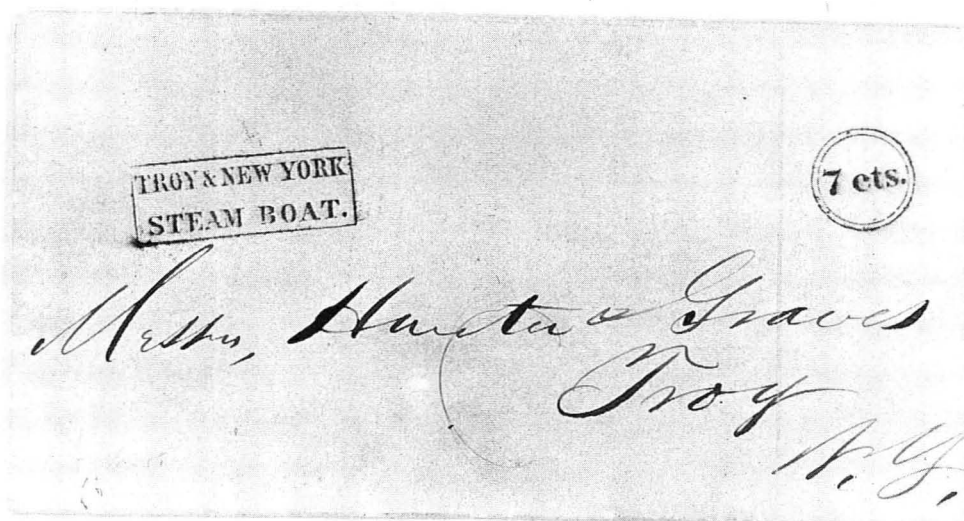 TROY & NEW YORK
STEAM BOAT.
7 cts.
Messrs, Hunter & Graves
Troy
N. Y.